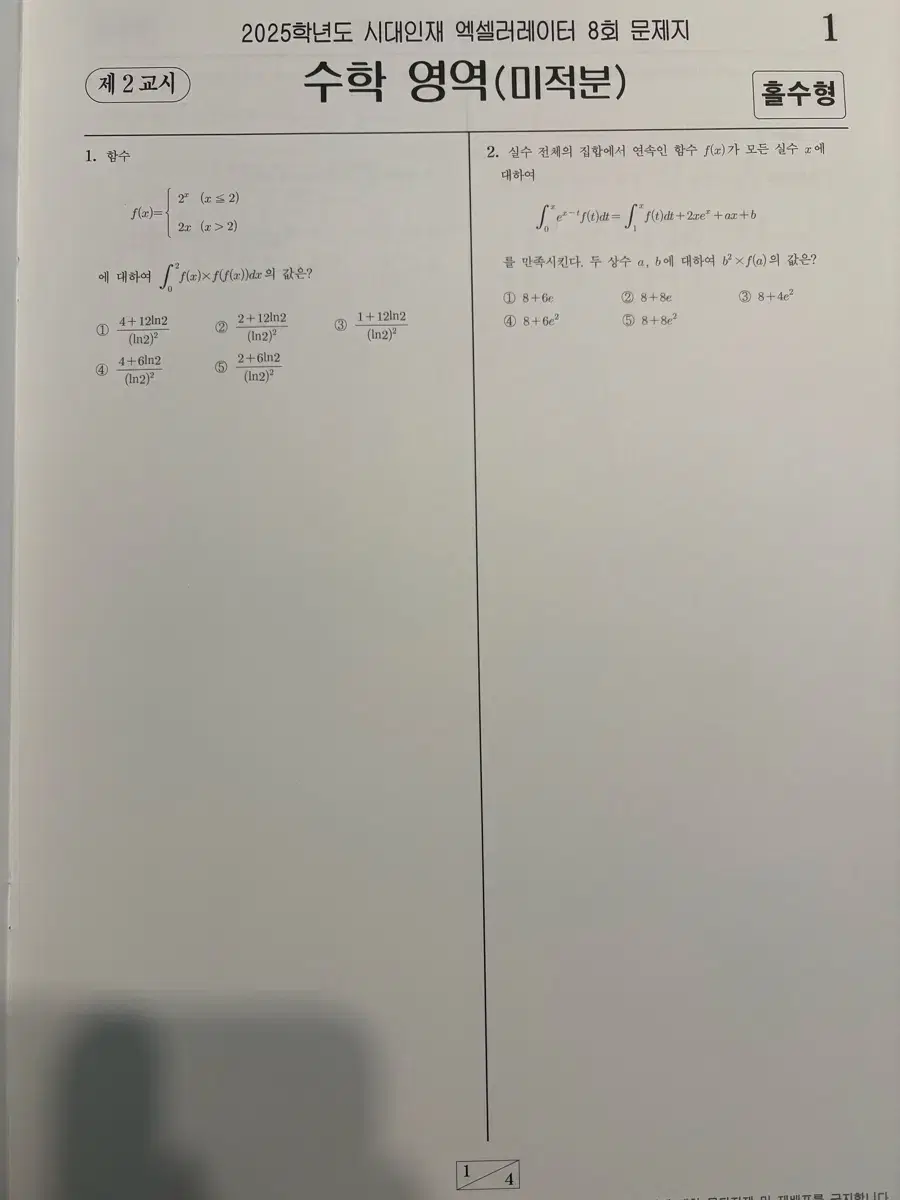 2025학년도 시대인재 엑셀러레이터 8회 문제지
1
제 2 교시
수학 영역(미적분)
홀수형
1. 함수
f(x)={ 2^x (x≦2)
2x (x>2)
에 대하여 ∫_0^2 f(x)×f(f(x))dx의 값은?
① (4+12ln2)/(ln2)^2 ② (2+12ln2)/(ln2)^2 ③ (1+12ln2)/(ln2)^2
④ (4+6ln2)/(ln2)^2 ⑤ (2+6ln2)/(ln2)^2
2. 실수 전체의 집합에서 연속인 함수 f(x)가 모든 실수 x에
대하여
∫_0^x e^{x-t}f(t)dt=∫_1^x f(t)dt+2xe^x+ax+b
를 만족시킨다. 두 상수 a, b에 대하여 b^2×f(a)의 값은?
① 8+6e ② 8+8e ③ 8+4e^2
④ 8+6e^2 ⑤ 8+8e^2
1
4